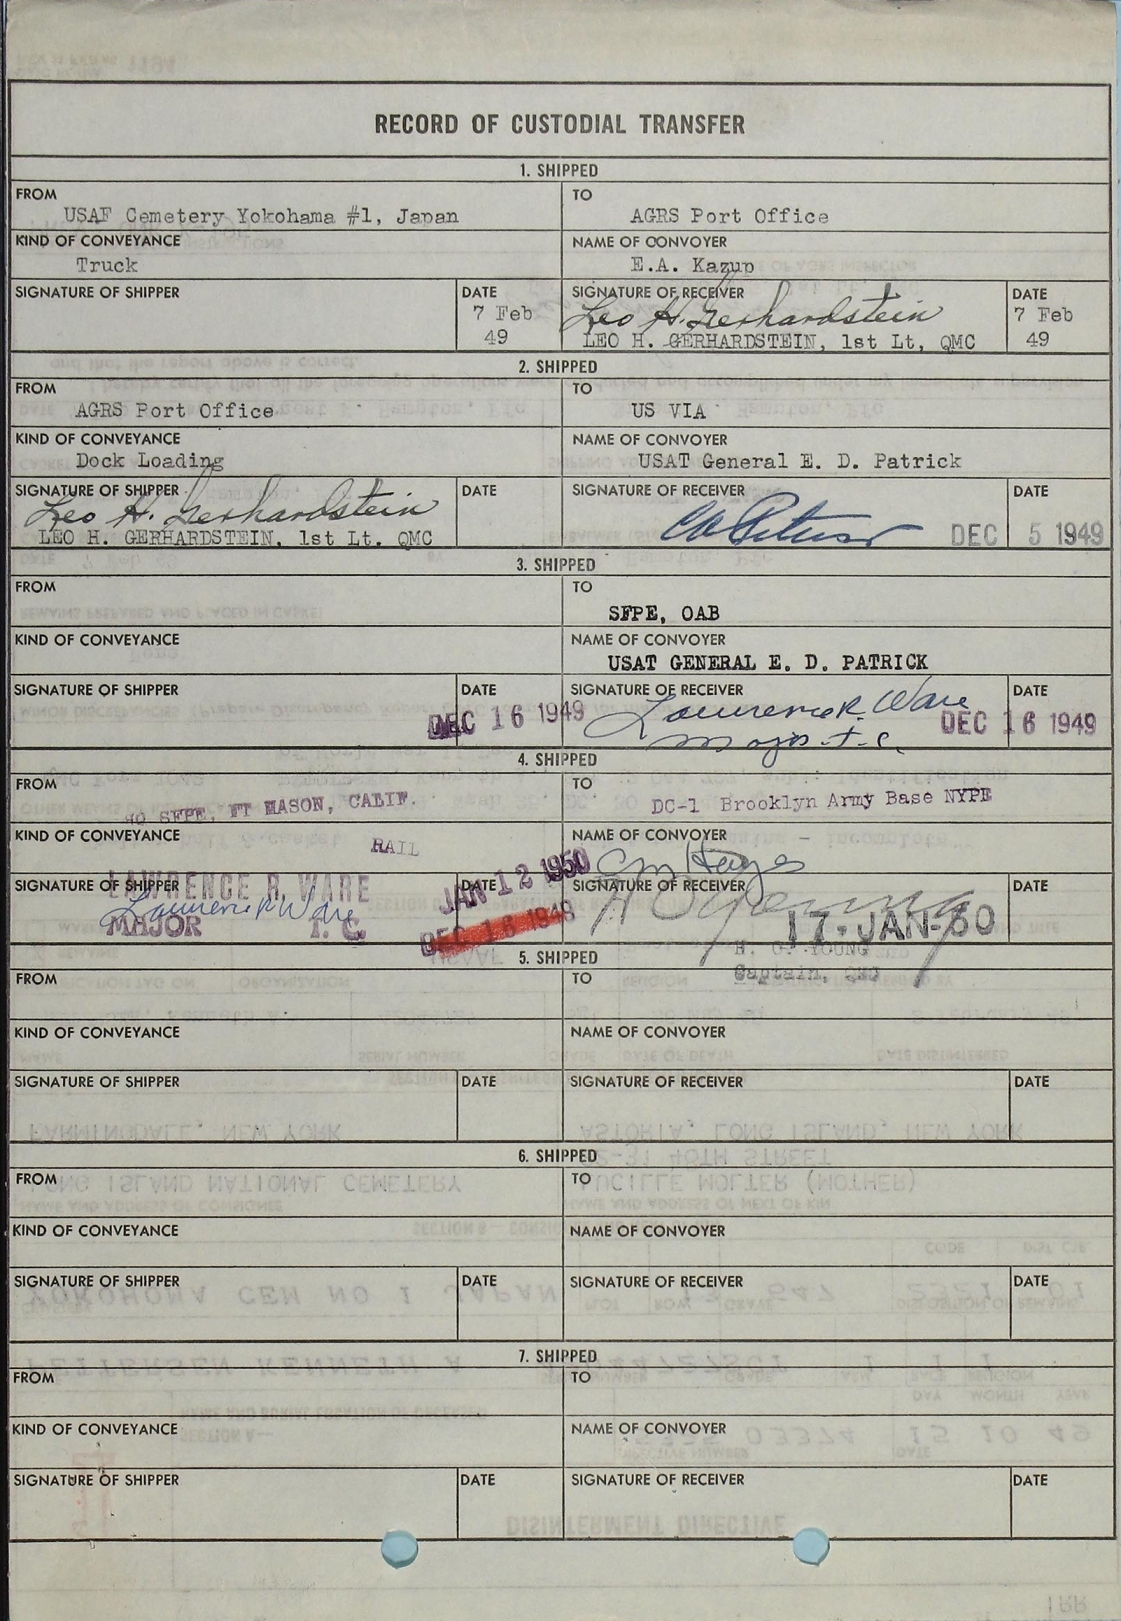 RECORD OF CUSTODIAL TRANSFER
1. SHIPPED
FROM
USAF Cemetery Yokohama #1, Japan
TO
AGRS Port Office
KIND OF CONVEYANCE
Truck
NAME OF CONVOYER
E.A. Kazup
SIGNATURE OF SHIPPER
DATE
7 Feb
49
SIGNATURE OF RECEIVER
Leo H. Gerhardstein
LEO H. GERHARDSTEIN, 1st Lt, QMC
DATE
7 Feb
49
2. SHIPPED
FROM
AGRS Port Office
TO
US VIA
KIND OF CONVEYANCE
Dock Loading
NAME OF CONVOYER
USAT General E. D. Patrick
SIGNATURE OF SHIPPER
Leo H. Gerhardstein
LEO H. GERHARDSTEIN, 1st Lt. QMC
DATE
SIGNATURE OF RECEIVER
DATE
DEC 5 1949
3. SHIPPED
FROM
TO
SFPE, OAB
KIND OF CONVEYANCE
NAME OF CONVOYER
USAT GENERAL E. D. PATRICK
SIGNATURE OF SHIPPER
DATE
DEC 16 1949
SIGNATURE OF RECEIVER
Lawrence R. Ware
Major T.C.
DATE
DEC 16 1949
4. SHIPPED
FROM
HQ SFPE, FT MASON, CALIF.
TO
DC-1 Brooklyn Army Base NYPE
KIND OF CONVEYANCE
RAIL
NAME OF CONVOYER
SIGNATURE OF SHIPPER
LAWRENCE R. WARE
Lawrence R Ware
MAJOR T.C.
DATE
JAN 12 1950
DEC 16 1949
SIGNATURE OF RECEIVER
17-JAN-50
H. C. YOUNG
Captain, QMC
DATE
5. SHIPPED
FROM
TO
KIND OF CONVEYANCE
NAME OF CONVOYER
SIGNATURE OF SHIPPER
DATE
SIGNATURE OF RECEIVER
DATE
6. SHIPPED
FROM
TO
KIND OF CONVEYANCE
NAME OF CONVOYER
SIGNATURE OF SHIPPER
DATE
SIGNATURE OF RECEIVER
DATE
7. SHIPPED
FROM
TO
KIND OF CONVEYANCE
NAME OF CONVOYER
SIGNATURE OF SHIPPER
DATE
SIGNATURE OF RECEIVER
DATE